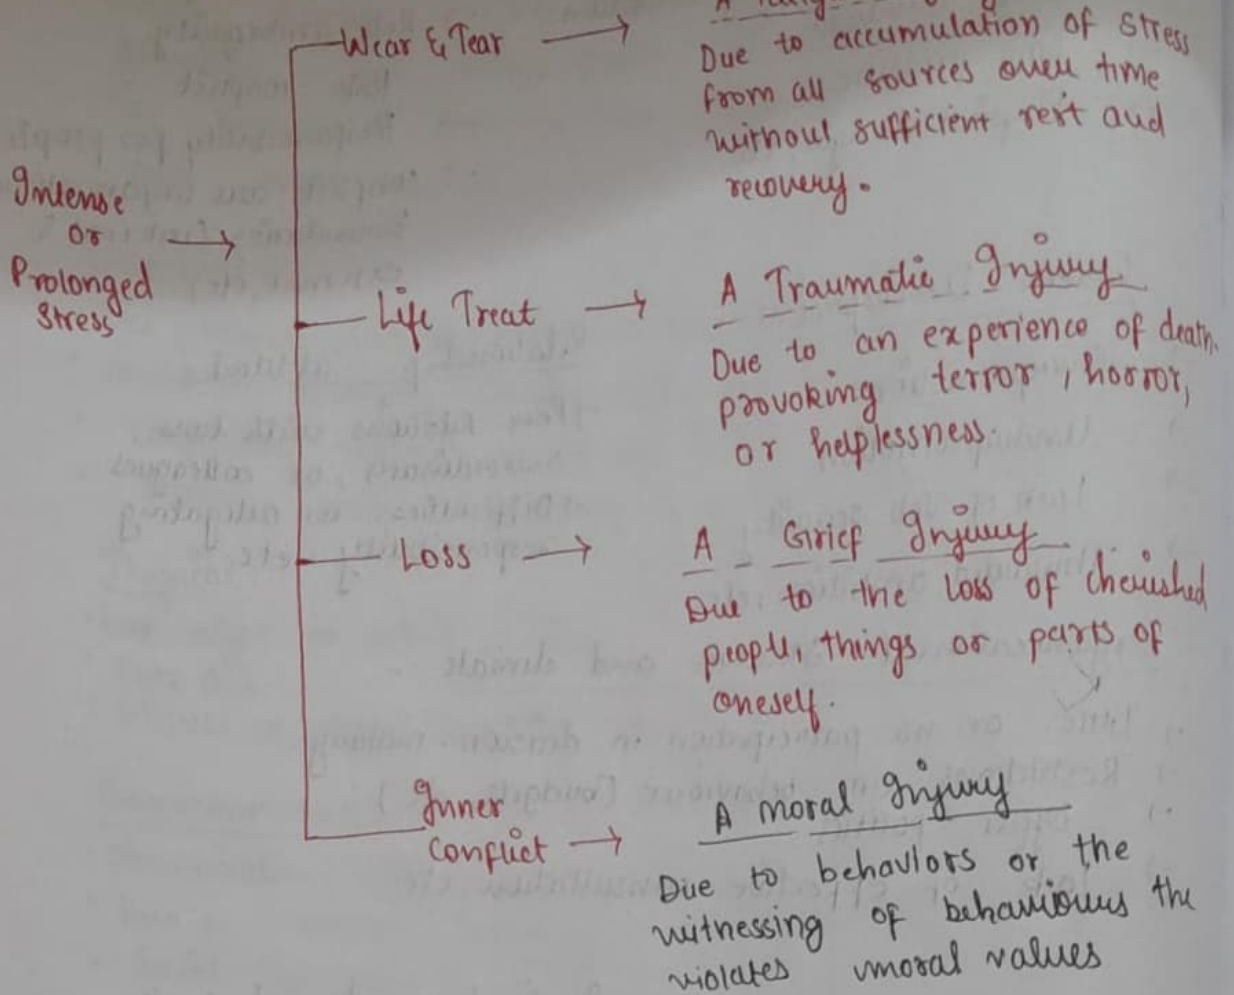 Wear & Tear
Due to accumulation of stress
from all sources over time
without sufficient rest and
recovery.
Intense
or
Prolonged
Stress
Life Treat
A Traumatic Injury
Due to an experience of death.
provoking terror, horror,
or helplessness.
Loss
A Grief Injury
Due to the loss of cherished
people, things or parts of
oneself.
Inner
Conflict
A moral Injury
Due to behaviors or the
witnessing of behaviours the
violates moral values